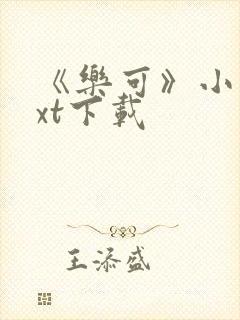 《樂可》小
xt下載
王添盛